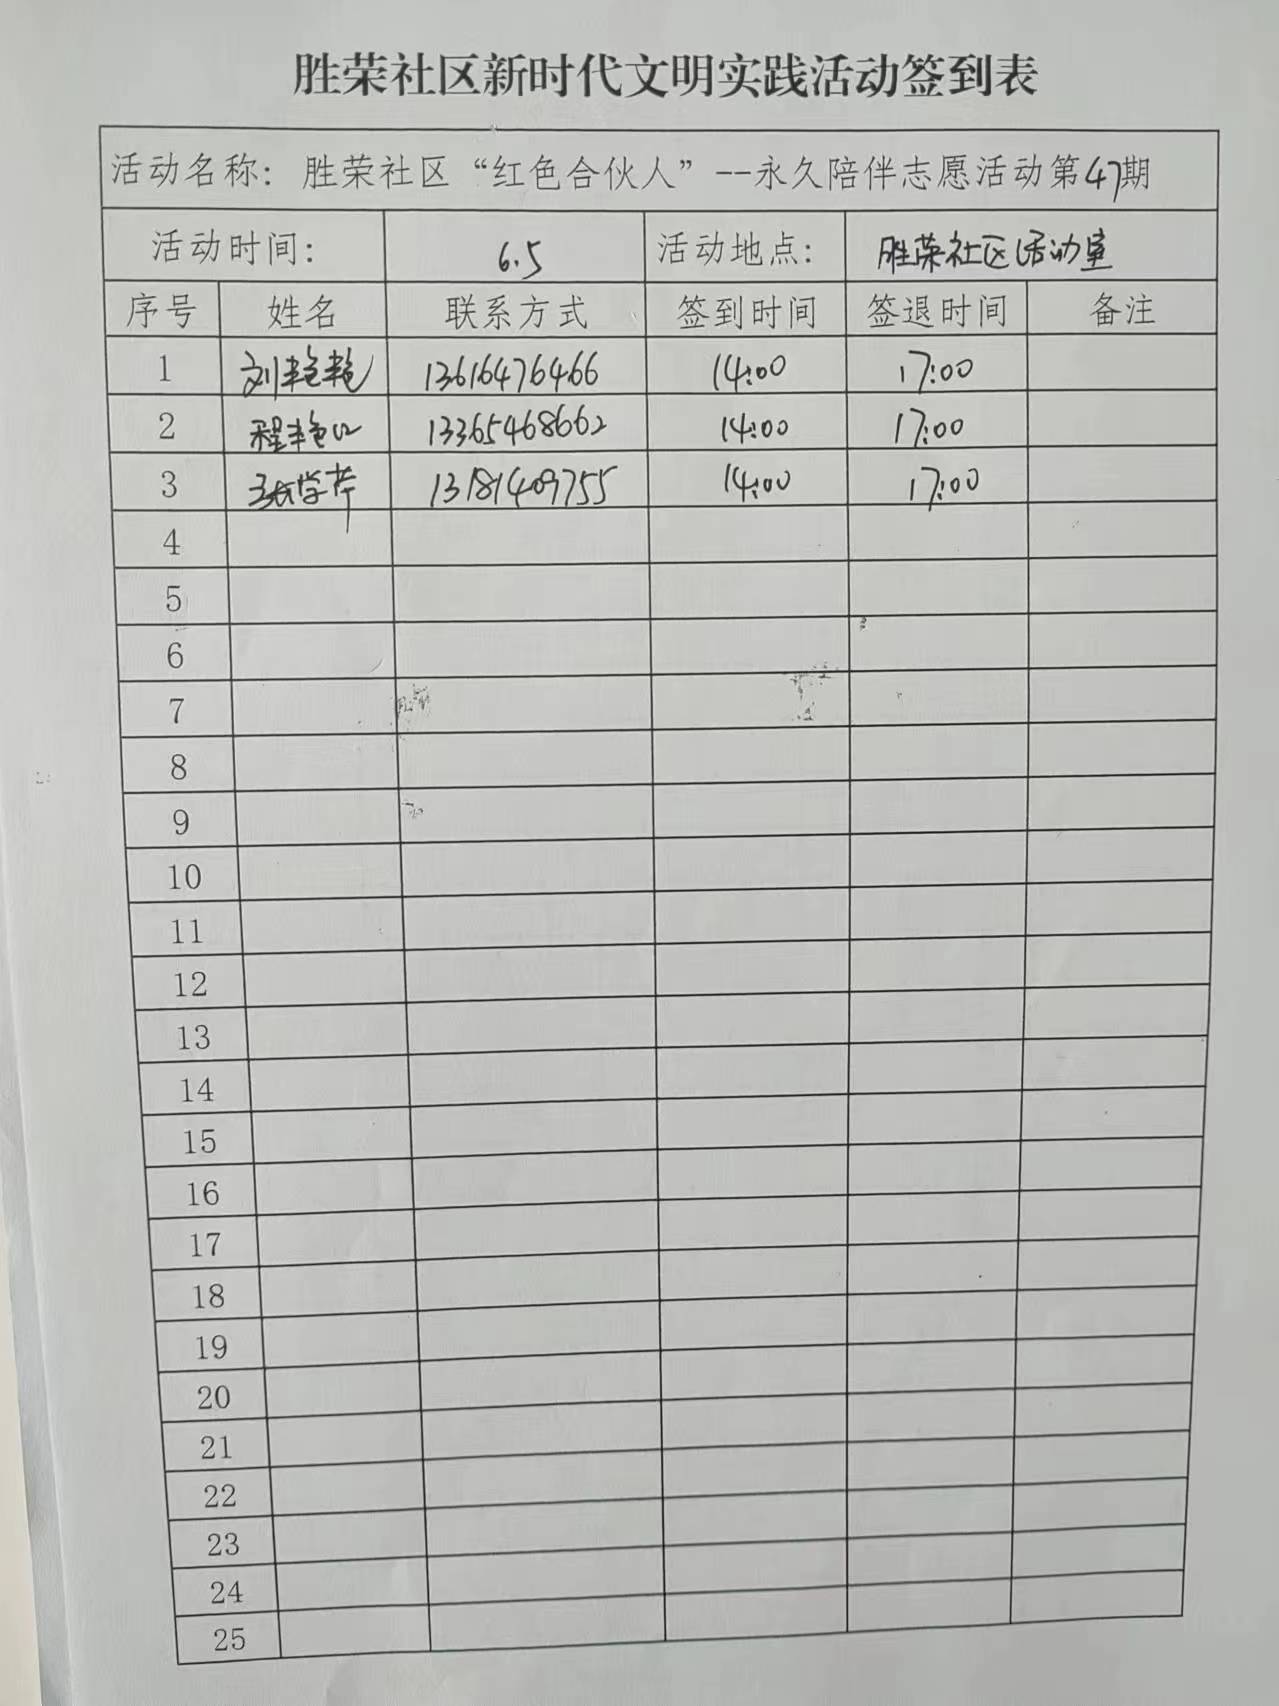 胜荣社区新时代文明实践活动签到表
活动名称：胜荣社区“红色合伙人”--永久陪伴志愿活动第47期
活动时间： 6.5 活动地点： 胜荣社区活动室
序号 姓名 联系方式 签到时间 签退时间 备注
1 刘艳艳 13616476466 14:00 17:00
2 程艳 13365468662 14:00 17:00
3 张学芹 13181409755 14:00 17:00
4
5
6
7
8
9
10
11
12
13
14
15
16
17
18
19
20
21
22
23
24
25